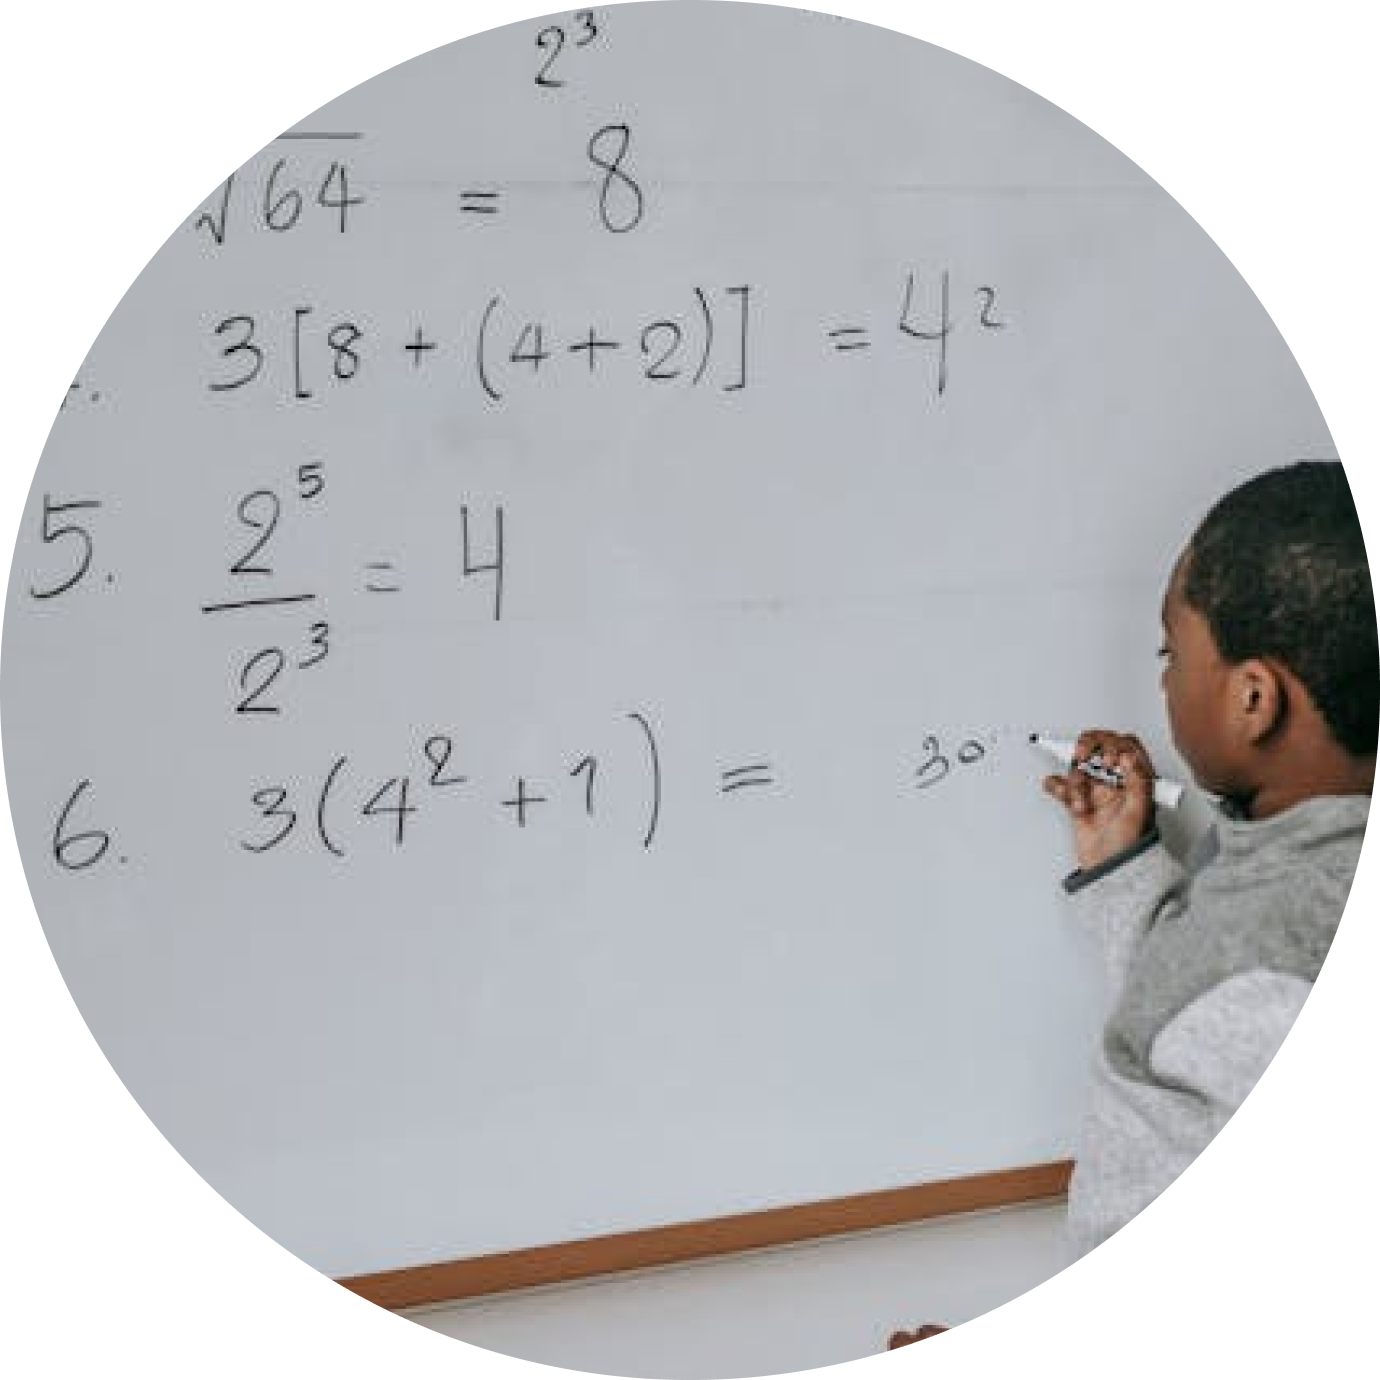 2³
√64 = 8
3[8 + (4+2)] = 42
5. 2⁵/2³ = 4
6. 3(4² + 1) = 30